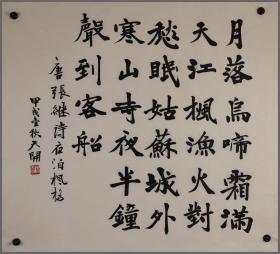 月落烏啼霜滿
天江楓漁火對
愁眠姑蘇城外
寒山寺夜半鐘
聲到客船
唐張継詩夜泊楓橋
甲戌金秋天開